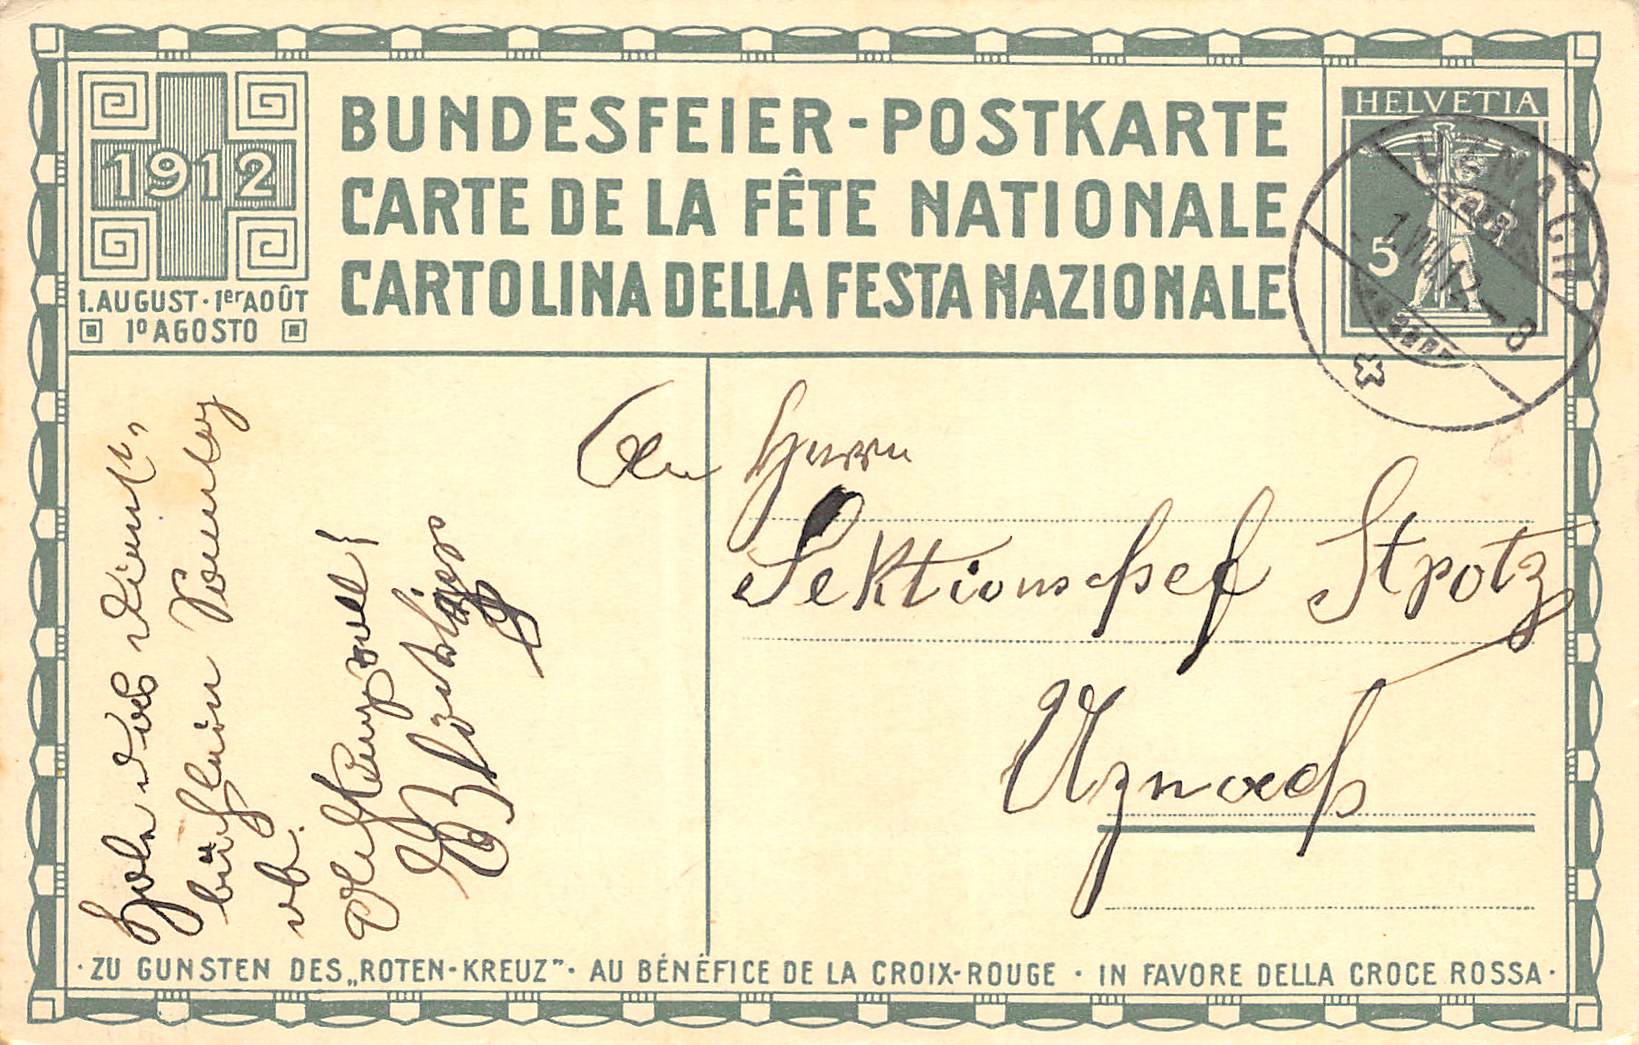 1912
1. AUGUST · 1er AOÛT
1º AGOSTO
BUNDESFEIER-POSTKARTE
CARTE DE LA FÊTE NATIONALE
CARTOLINA DELLA FESTA NAZIONALE
HELVETIA
5
UZNACH
1.VIII.12-8
An Herrn
Sektionschef Strotz
Uznach
Hole das Dienst-
büchlein Sonntag
ab.
Achtungsvoll!
· ZU GUNSTEN DES „ROTEN-KREUZ" · AU BÉNÉFICE DE LA CROIX-ROUGE · IN FAVORE DELLA CROCE ROSSA ·